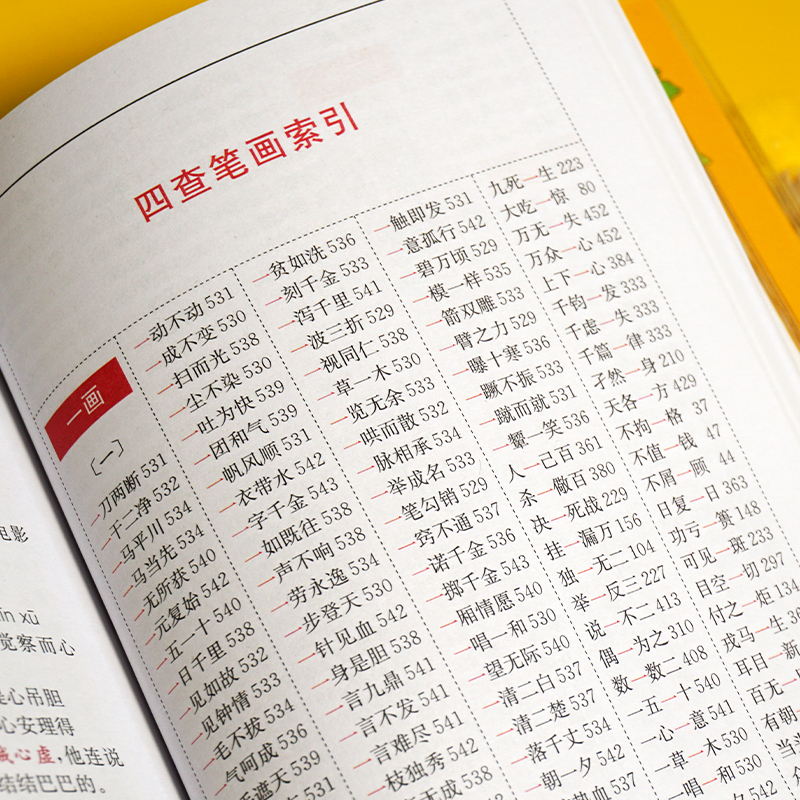 四查笔画索引
一画
〔一〕
一刀两断 531
一干二净 532
一马平川 534
一马当先 534
一无所获 540
一元复始 542
一五一十 540
一日千里 538
一见如故 532
一见钟情 533
一毛不拔 534
一气呵成 536
遮天 539
531
一动不动 531
一成不变 530
一扫而光 538
一尘不染 530
一吐为快 539
一团和气 539
一帆风顺 531
一衣带水 542
一字千金 543
一如既往 538
一声不响 538
一劳永逸 534
一步登天 530
一针见血 542
一身是胆 538
一言九鼎 541
一言不发 541
一言难尽 541
一枝独秀 542
无成 538
一贫如洗 536
一刻千金 533
一泻千里 541
一波三折 529
一视同仁 538
一草一木 530
一览无余 533
一哄而散 532
一脉相承 534
一举成名 533
一笔勾销 529
一窍不通 537
一诺千金 536
一掷千金 543
一厢情愿 540
一唱一和 530
一望无际 540
一清二白 537
一清二楚 537
一落千丈 534
一朝一夕 542
热血 537
一触即发 531
一意孤行 542
一碧万顷 529
一模一样 535
一箭双雕 533
一臂之力 529
一曝十寒 536
一蹶不振 533
一蹴而就 531
一颦一笑 536
人一己百 361
杀一儆百 380
决一死战 229
挂一漏万 156
独一无二 104
举一反三 227
说一不二 413
偶一为之 310
数一数二 408
一五一十 540
一心一意 541
一草一木 530
一唱一和 530
一夕 542
九死一生 223
大吃一惊 80
万无一失 452
万众一心 452
上下一心 384
千钧一发 333
千虑一失 333
千篇一律 333
孑然一身 210
天各一方 429
不拘一格 37
不值一钱 47
不屑一顾 44
日复一日 363
功亏一篑 148
可见一斑 233
目空一切 297
付之一炬 134
戎马一生
耳目一新
百无一
有朝一
当
电影
ín xū
觉察而心
心吊胆
心安理得
心虚,他连说
结结巴巴的。